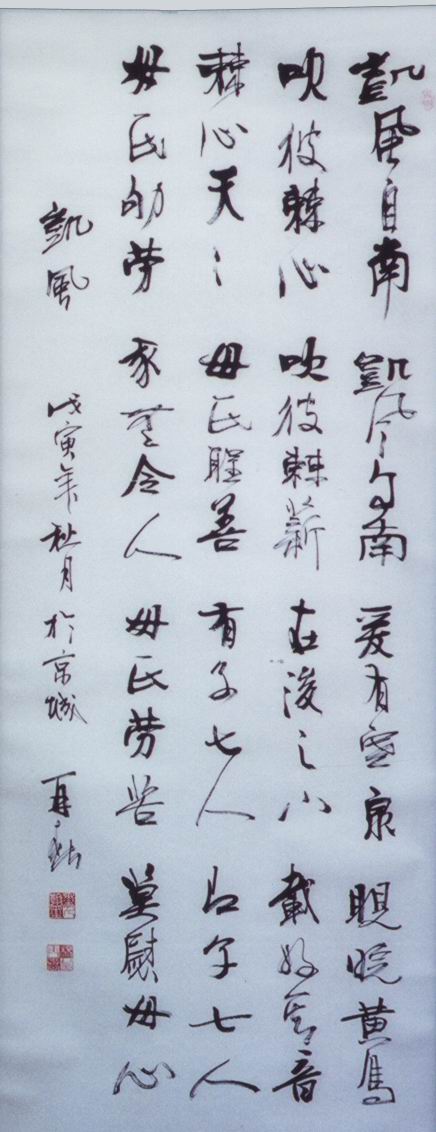 凱風自南
吹彼棘心
棘心夭〻
母氏劬勞
凱風自南
吹彼棘薪
母氏聖善
我無令人
爰有寒泉
在浚之下
有子七人
母氏勞苦
睍睆黃鳥
載好其音
有子七人
莫慰母心
凱風
戊寅年秋月於京城